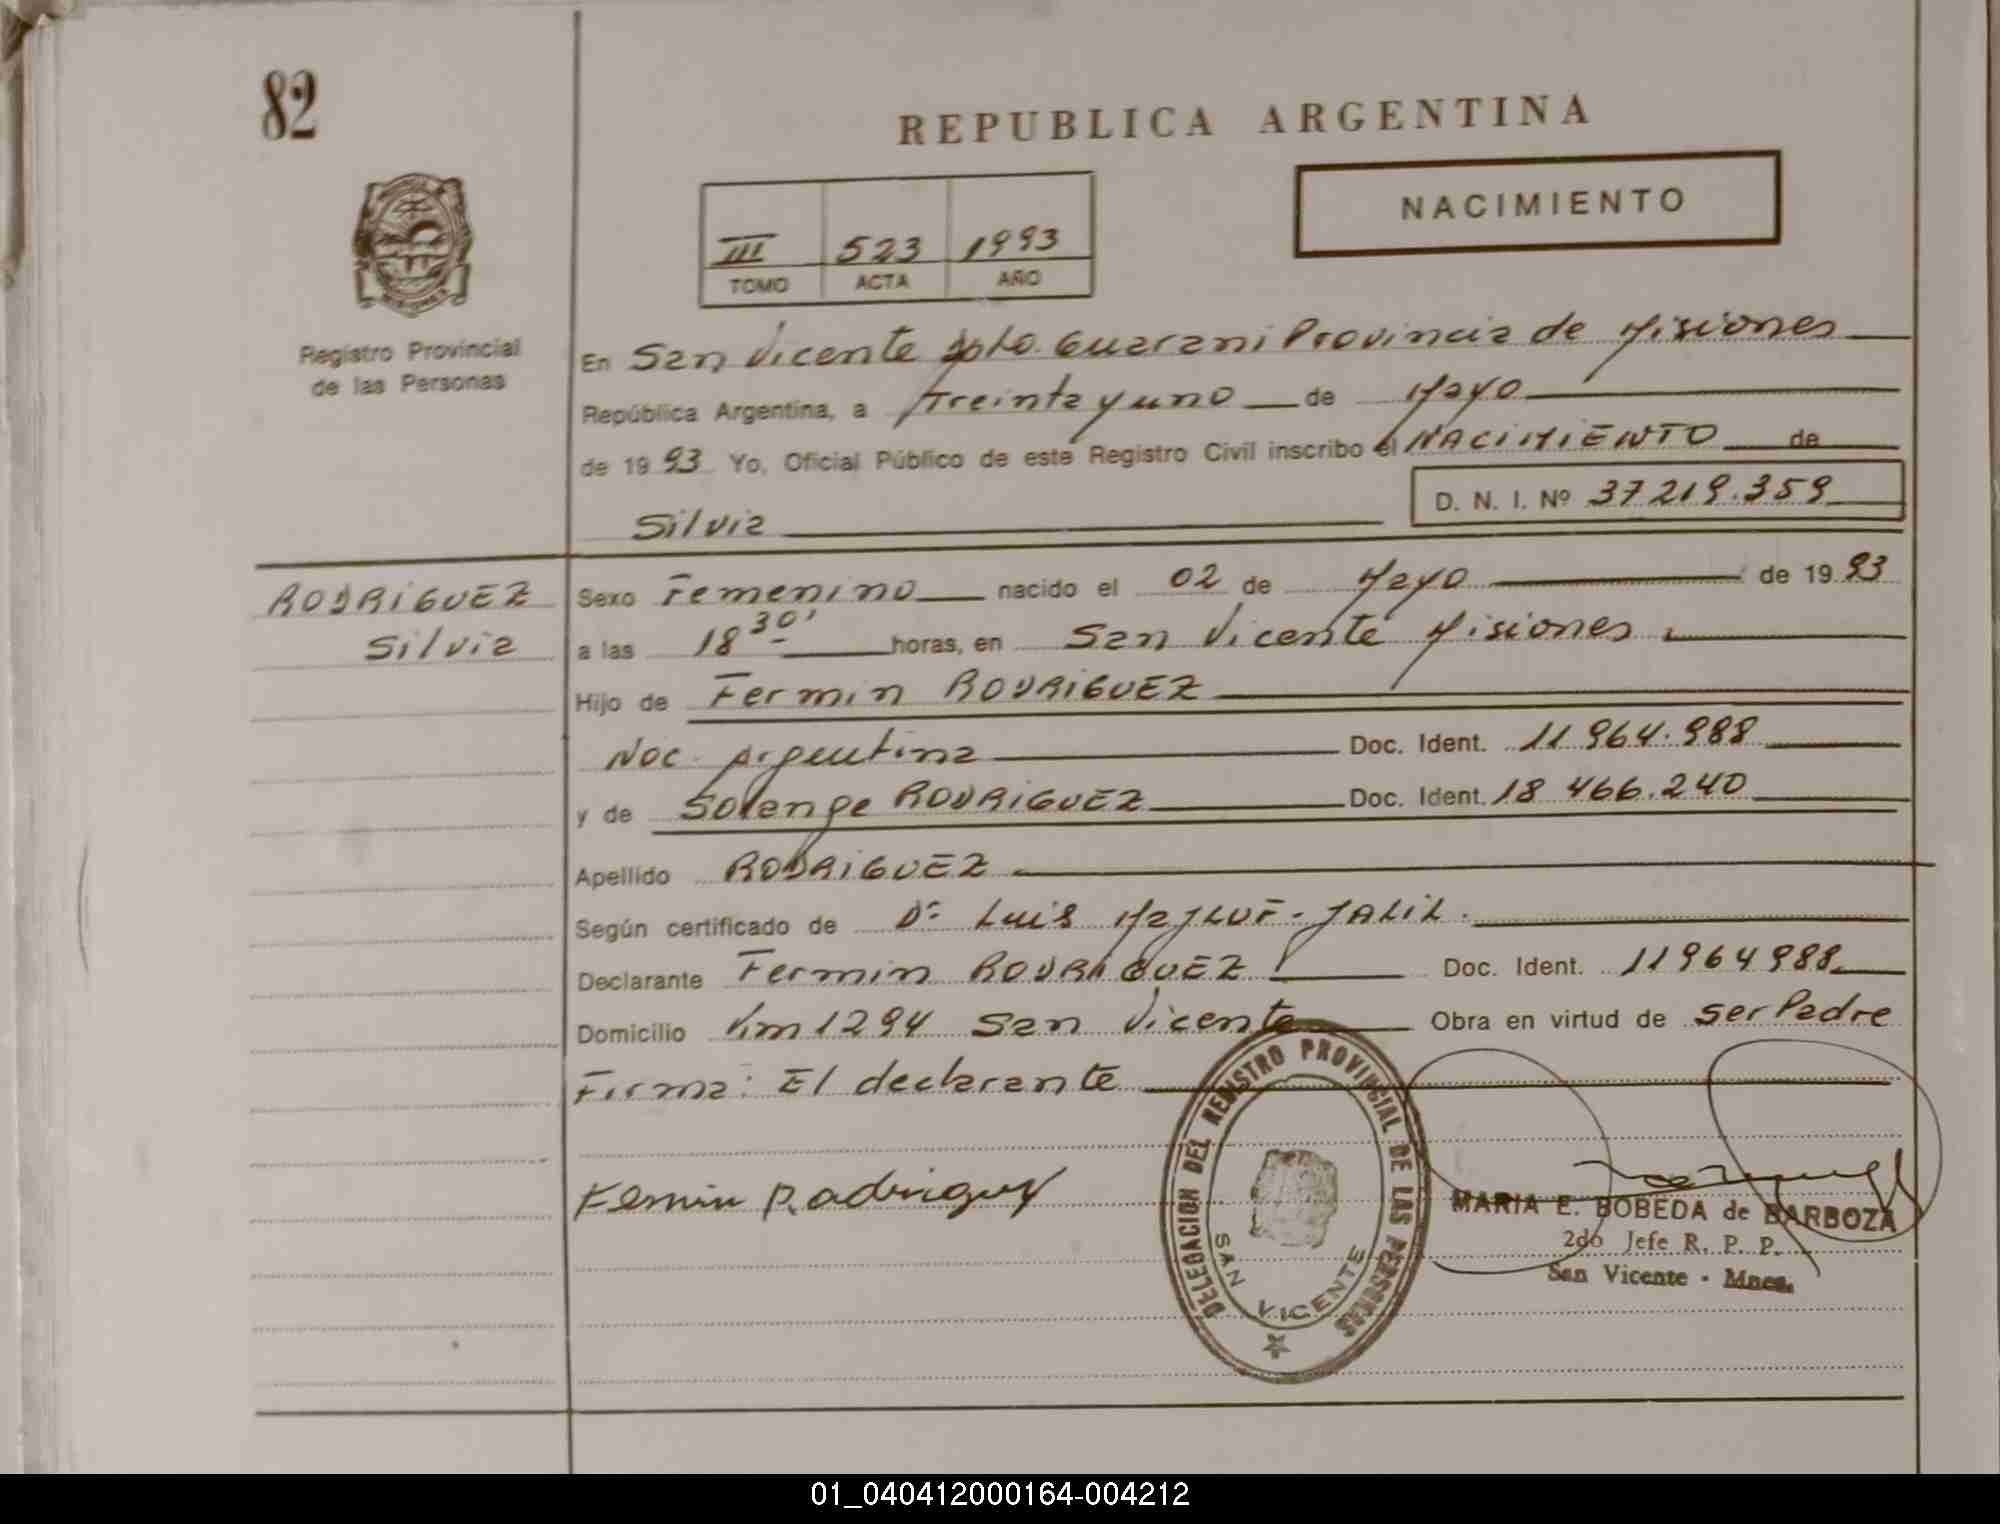 82
REPUBLICA ARGENTINA
NACIMIENTO
III 523 1993
TOMO ACTA AÑO
MISIONES
Registro Provincial
de las Personas
En San Vicente Dpto. Guarani Provincia de Misiones
República Argentina, a Treinta y uno de Mayo
de 1993 Yo, Oficial Público de este Registro Civil inscribo el NACIMIENTO de
D. N. I. Nº 37219.359
Silvia
RODRIGUEZ
Silvia
Sexo Femenino nacido el 02 de Mayo de 1993
a las 18 30' horas, en San Vicente Misiones
Hijo de Fermin RODRIGUEZ
Nac. Argentina Doc. Ident. 11 964.988
y de Solenge RODRIGUEZ Doc. Ident. 18 466.240
Apellido RODRIGUEZ
Según certificado de Dr. Luis JALIL.
Declarante Fermin RODRIGUEZ Doc. Ident. 11964988
Domicilio Km 1294 San Vicente Obra en virtud de ser Padre
Firma: El declarante
Fermin Rodriguez
DELEGACION DEL REGISTRO PROVINCIAL DE LAS PERSONAS
SAN VICENTE
MARIA E. BOBEDA de BARBOZA
2do Jefe R. P. P.
San Vicente - Mnes.
01_040412000164-004212